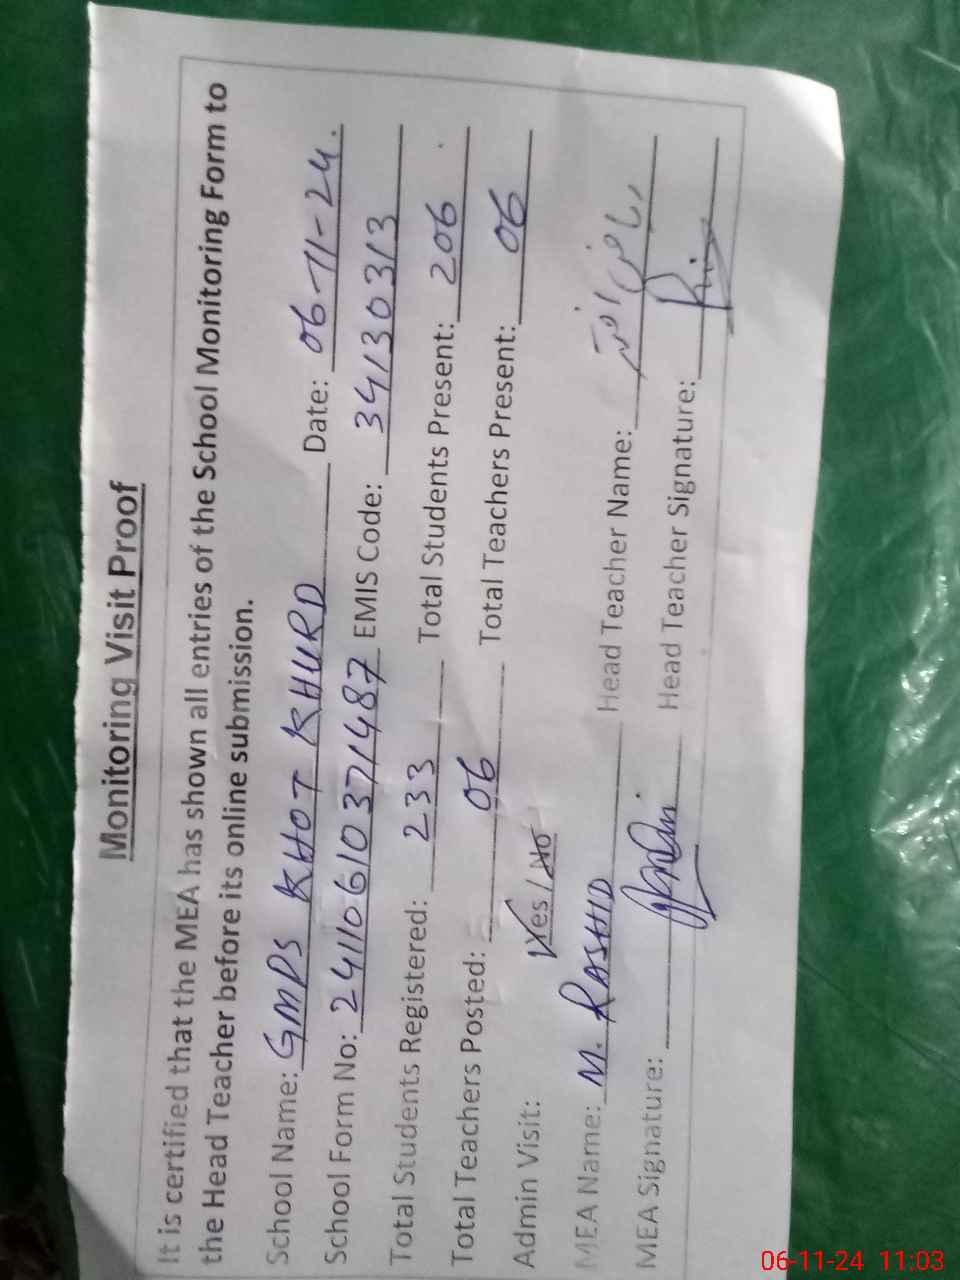 Monitoring Visit Proof
It is certified that the MEA has shown all entries of the School Monitoring Form to
the Head Teacher before its online submission.
School Name: GMPS KHOT KHURD Date: 06-11-24.
School Form No: 24110610371487 EMIS Code: 34130313
Total Students Registered: 233 Total Students Present: 206
Total Teachers Posted: 06 Total Teachers Present: 06
Admin Visit: Yes / No
MEA Name: M. RASHID Head Teacher Name:
MEA Signature: Head Teacher Signature:
06-11-24 11:03